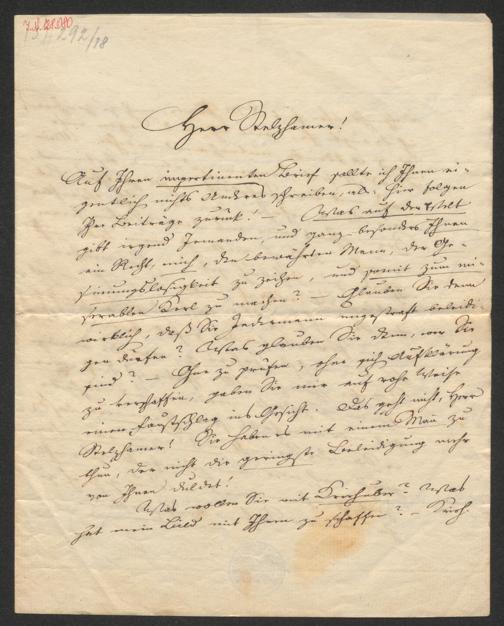 J.N. 121.080
292/18
Herr Stelzhamer!
Auf Ihren impertinenten Brief sollte ich Ihnen ei-
gentlich nichts Anderes schreiben, als: hier folgen
Ihre Beiträge zurück! — Was auf der Welt
gibt irgend Jemanden, und ganz besonders Ihnen
ein Recht, mich, den bewährten Mann, der Ge-
sinnungslosigkeit zu zeihen, und somit zum mi-
serablen Kerl zu machen? — Glauben Sie denn
wirklich, daß Sie Jedermann ungestraft beleidi-
gen dürfen? Was glauben Sie denn, wer Sie
sind? — Ohne zu prüfen, ohne sich Aufklärung
zu verschaffen, geben Sie mir auf rohe Weise
einen Faustschlag ins Gesicht. Das geht nicht, Herr
Stelzhamer! Sie haben es mit einem Mann zu
thun, der nicht die geringste Beleidigung mehr
von Ihnen duldet!
Was wollen Sie mit ? Was
hat mein mit Ihrem zu schaffen? —